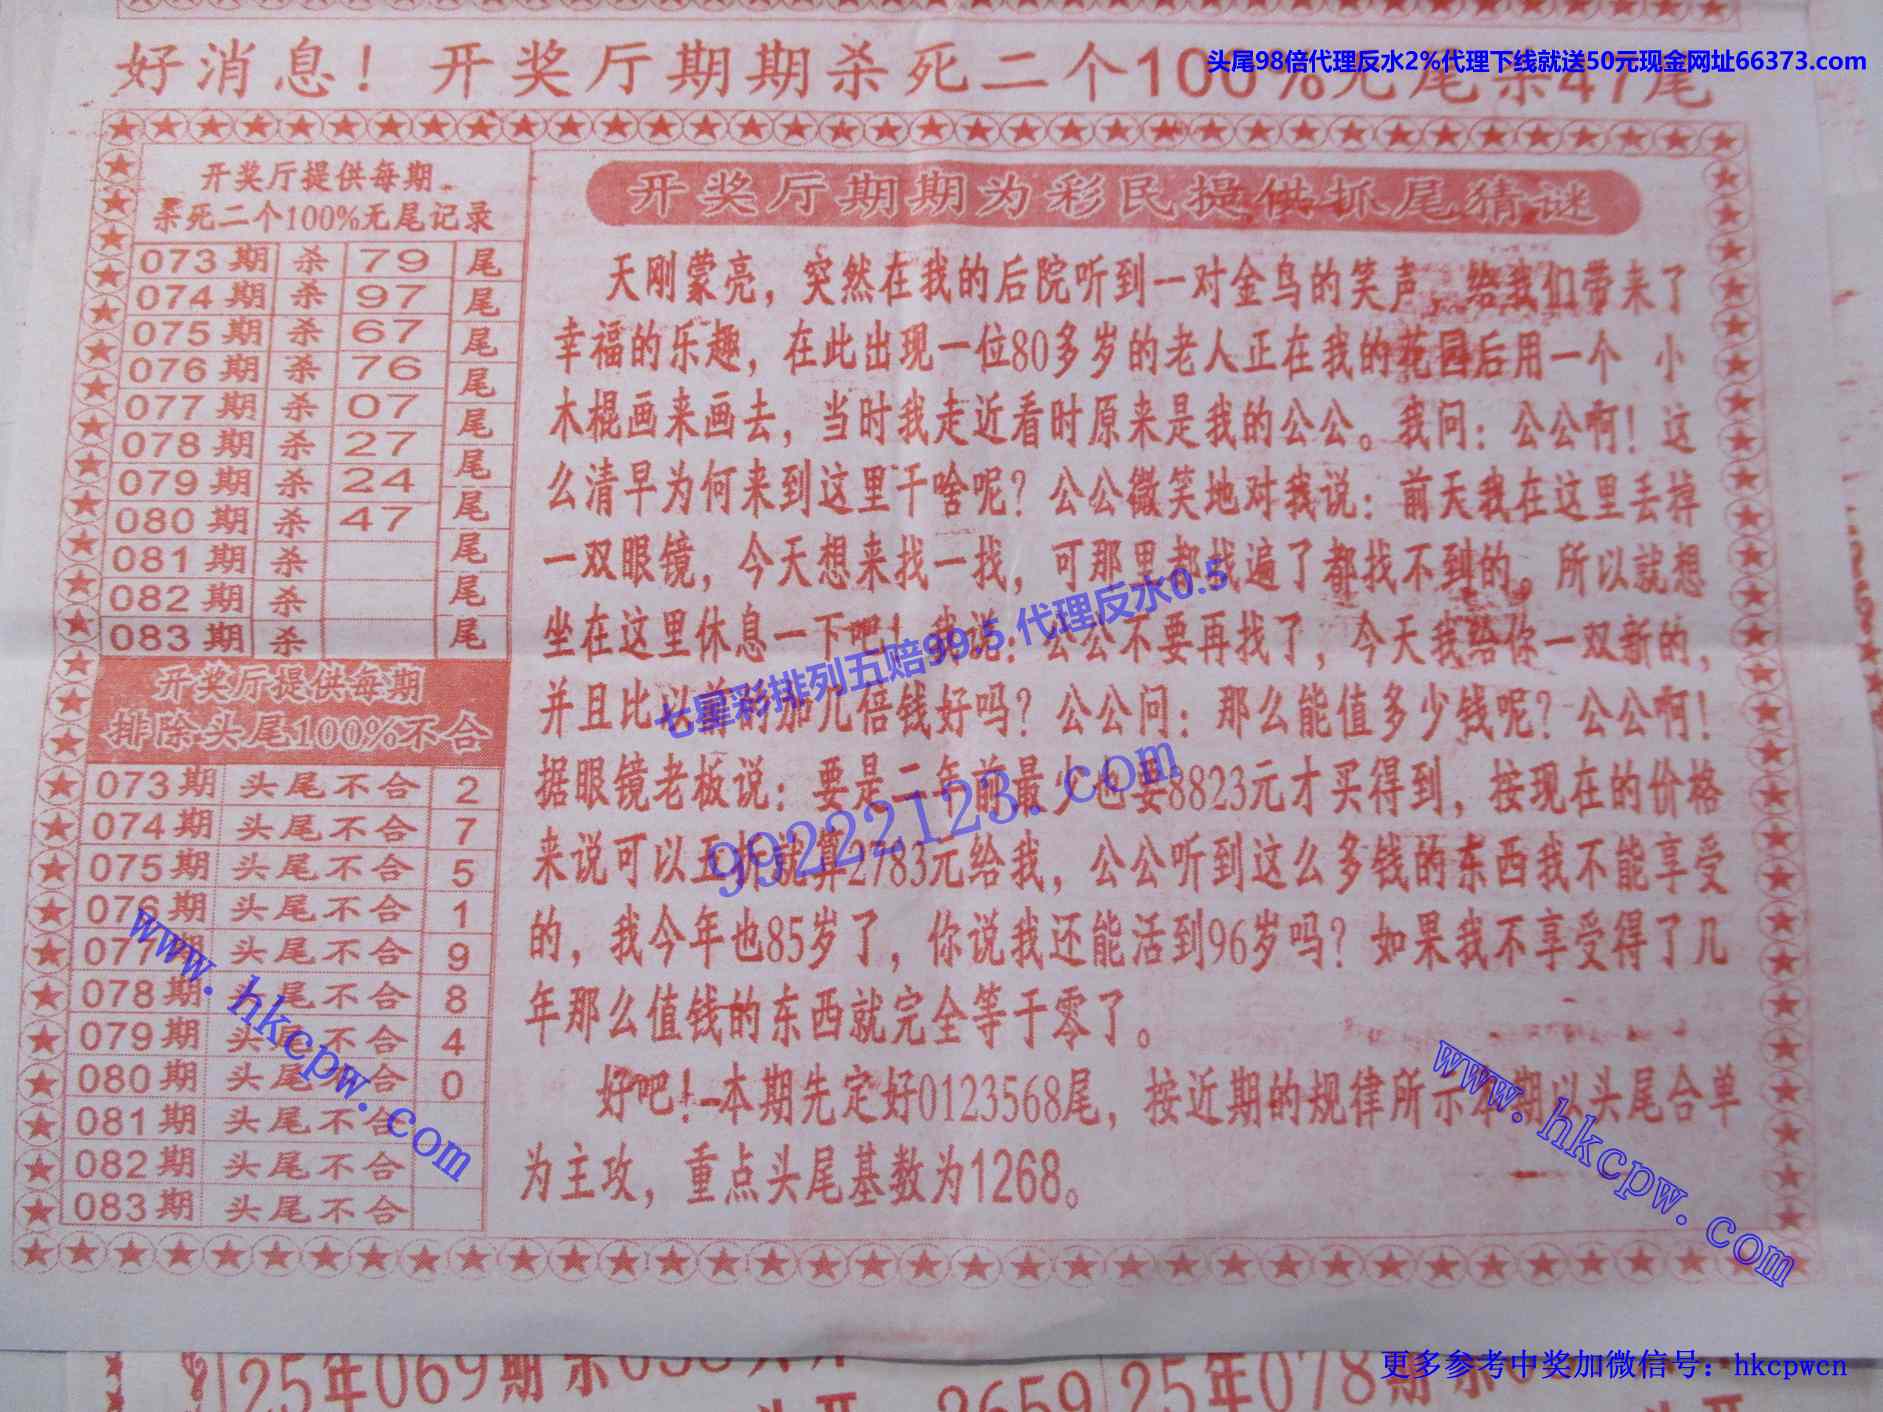 头尾98倍代理反水2%代理下线就送50元现金网址66373.com
好消息！开奖厅期期杀死二个100%无尾杀47尾
开奖厅提供每期
杀死二个100%无尾记录
073期 杀 79 尾
074期 杀 97 尾
075期 杀 67 尾
076期 杀 76 尾
077期 杀 07 尾
078期 杀 27 尾
079期 杀 24 尾
080期 杀 47 尾
081期 杀 尾
082期 杀 尾
083期 杀 尾
开奖厅提供每期
排除头尾100%不合
073期 头尾不合 2
074期 头尾不合 7
075期 头尾不合 5
076期 头尾不合 1
077期 头尾不合 9
078期 头尾不合 8
079期 头尾不合 4
080期 头尾不合 0
081期 头尾不合
082期 头尾不合
083期 头尾不合
开奖厅期期为彩民提供抓尾猜谜
天刚蒙亮，突然在我的后院听到一对金鸟的笑声，给我们带来了
幸福的乐趣，在此出现一位80多岁的老人正在我的花园后用一个 小
木棍画来画去，当时我走近看时原来是我的公公。我问：公公啊！这
么清早为何来到这里干啥呢？公公微笑地对我说：前天我在这里丢掉
一双眼镜，今天想来找一找，可那里都找遍了都找不到的。所以就想
坐在这里休息一下吧！我说：公公不要再找了，今天我给你一双新的，
并且比以前的加几倍钱好吗？公公问：那么能值多少钱呢？公公啊！
据眼镜老板说：要是二年前最少也要8823元才买得到，按现在的价格
来说可以五折就算2783元给我，公公听到这么多钱的东西我不能享受
的，我今年也85岁了，你说我还能活到96岁吗？如果我不享受得了几
年那么值钱的东西就完全等于零了。
好吧！本期先定好0123568尾，按近期的规律所示本期以头尾合单
为主攻，重点头尾基数为1268。
七星彩排列五赔99.5代理反水0.5
99222123.com
www.hkcpw.com
www.hkcpw.com
25年069期杀
2659
25年078期杀
更多参考中奖加微信号：hkcpwcn